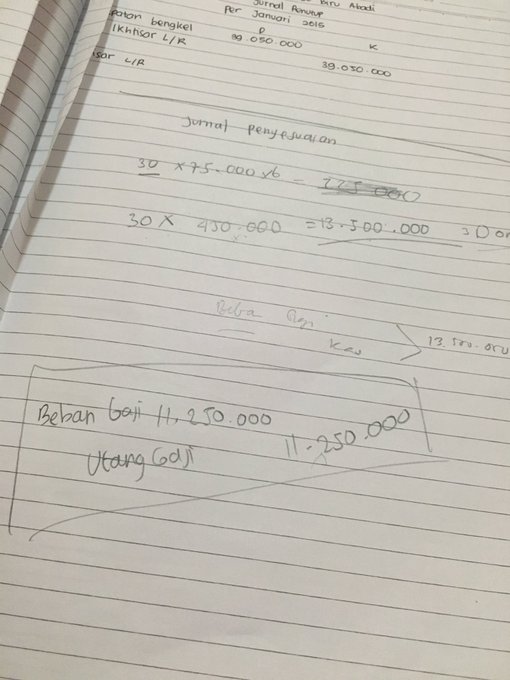 Biru Abadi
Jurnal Penutup
Per Januari 2015
D K
bengkel 39.050.000
Ikhtisar L/R 39.050.000
L/R
Jurnal Penyesuaian
30 × 75.000 x6 = 225.000
30 × 450.000 = 13.500.000
Beba Gaji
Kas
13.500.000
Beban Gaji 11.250.000
Utang Gaji 11.250.000